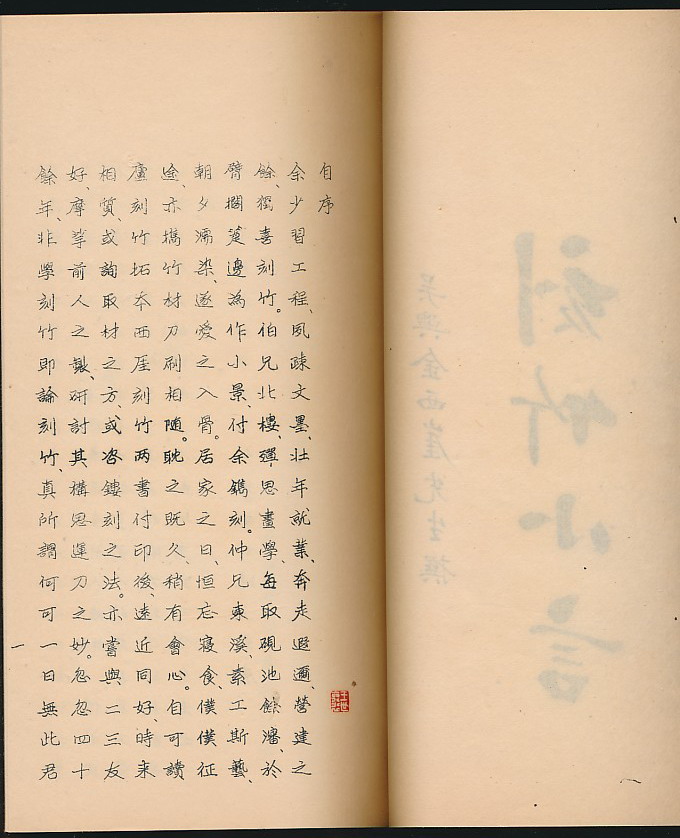 刻竹小言
吳興金西崖先生撰
自序
余少習工程、夙疎文墨、壯年就業、奔走遐邇、營建之
餘、獨喜刻竹。伯兄北樓、殫思畫學、每取硯池餘瀋、於
臂擱箑邊為作小景、付余鐫刻。仲兄東溪、素工斯藝、
朝夕濡染、遂愛之入骨。居家之日、恒忘寢食、僕僕征
途、亦攜竹材刀刷相隨。耽之既久、稍有會心。自可讀
廬刻竹拓本西厓刻竹两書付印後、遠近同好、時来
相質、或詢取材之方、或咨鏤刻之法。亦嘗與二三友
好、摩挲前人之製、研討其構思運刀之妙。忽忽四十
餘年非學刻竹即論刻竹、真所謂何可一日無此君
一